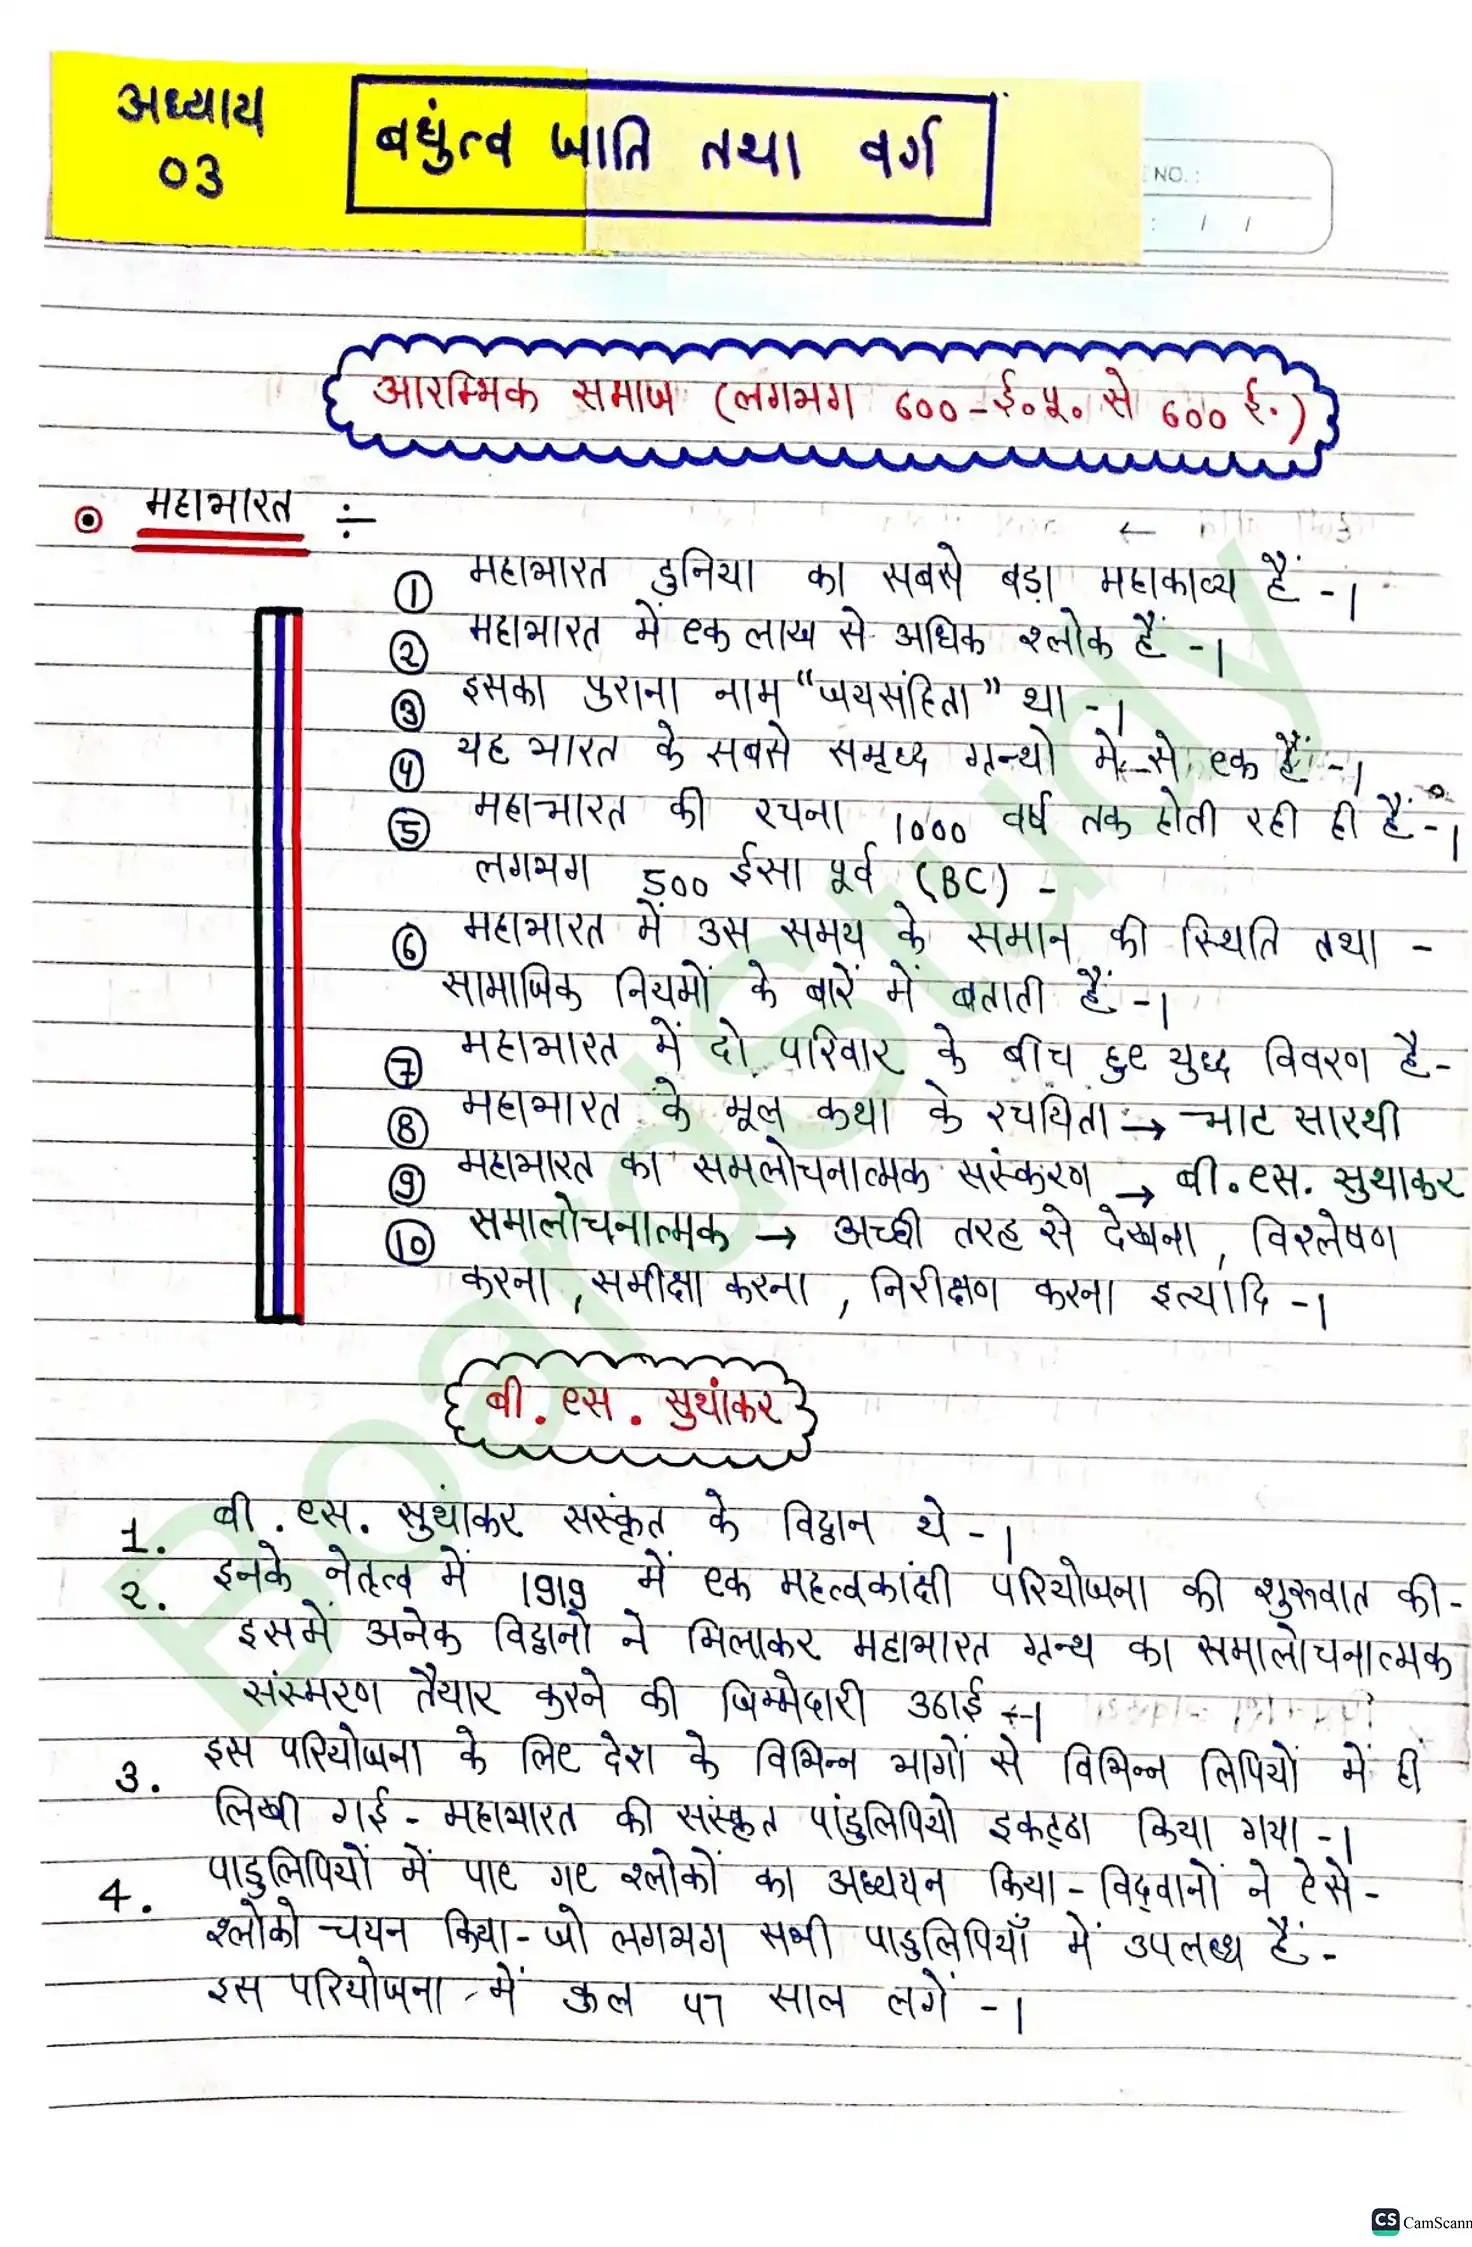 अध्याय
03
बधुंत्व जाति तथा वर्ग
NO. :
: / /
आरम्भिक समाज (लगभग 600-ई.पू. से 600 ई.)
महाभारत ÷
① महाभारत दुनिया का सबसे बड़ा महाकाव्य हैं -।
② महाभारत में एक लाख से अधिक श्लोक हैं -।
③ इसका पुराना नाम "जयसंहिता" था -।
④ यह भारत के सबसे समृध्द ग्रन्थो में से एक हैं -।
⑤ महाभारत की रचना 1000 वर्ष तक होती रही ही हैं -।
लगभग 500 ईसा पूर्व (BC) -
⑥ महाभारत में उस समय के समान की स्थिति तथा -
सामाजिक नियमों के बारें में बताती हैं -।
⑦ महाभारत में दो परिवार के बीच हुए युध्द विवरण है-
⑧ महाभारत के मूल कथा के रचयिता → भाट सारथी
⑨ महाभारत का समलोचनात्मक संस्करण → बी.एस. सुथाकर
⑩ समालोचनात्मक → अच्छी तरह से देखना, विश्लेषण
करना, समीक्षा करना, निरीक्षण करना इत्यादि -।
बी. एस. सुथांकर
1. बी. एस. सुथांकर सस्कृंत के विद्वान थे -।
2. इनके नेतृत्व में 1919 में एक महत्वकांक्षी परियोजना की शुरूवात की -
इसमें अनेक विद्वानो ने मिलाकर महाभारत ग्रन्थ का समालोचनात्मक
संस्मरण तैयार करने की जिम्मेदारी उठाई -।
3. इस परियोजना के लिए देश के विभिन्न भागों से विभिन्न लिपियों में हीं
लिखी गई - महाभारत की संस्कृत पांडुलिपियो इकट्ठा किया गया -।
4. पाडुलिपियों में पाए गए श्लोकों का अध्ययन किया - विद्वानों ने ऐसे -
श्लोको चयन किया - जो लगभग सभी पाडुलिपियाँ में उपलब्ध हैं -
इस परियोजना में कुल 47 साल लगें -।
BoardStudy
CS CamScann